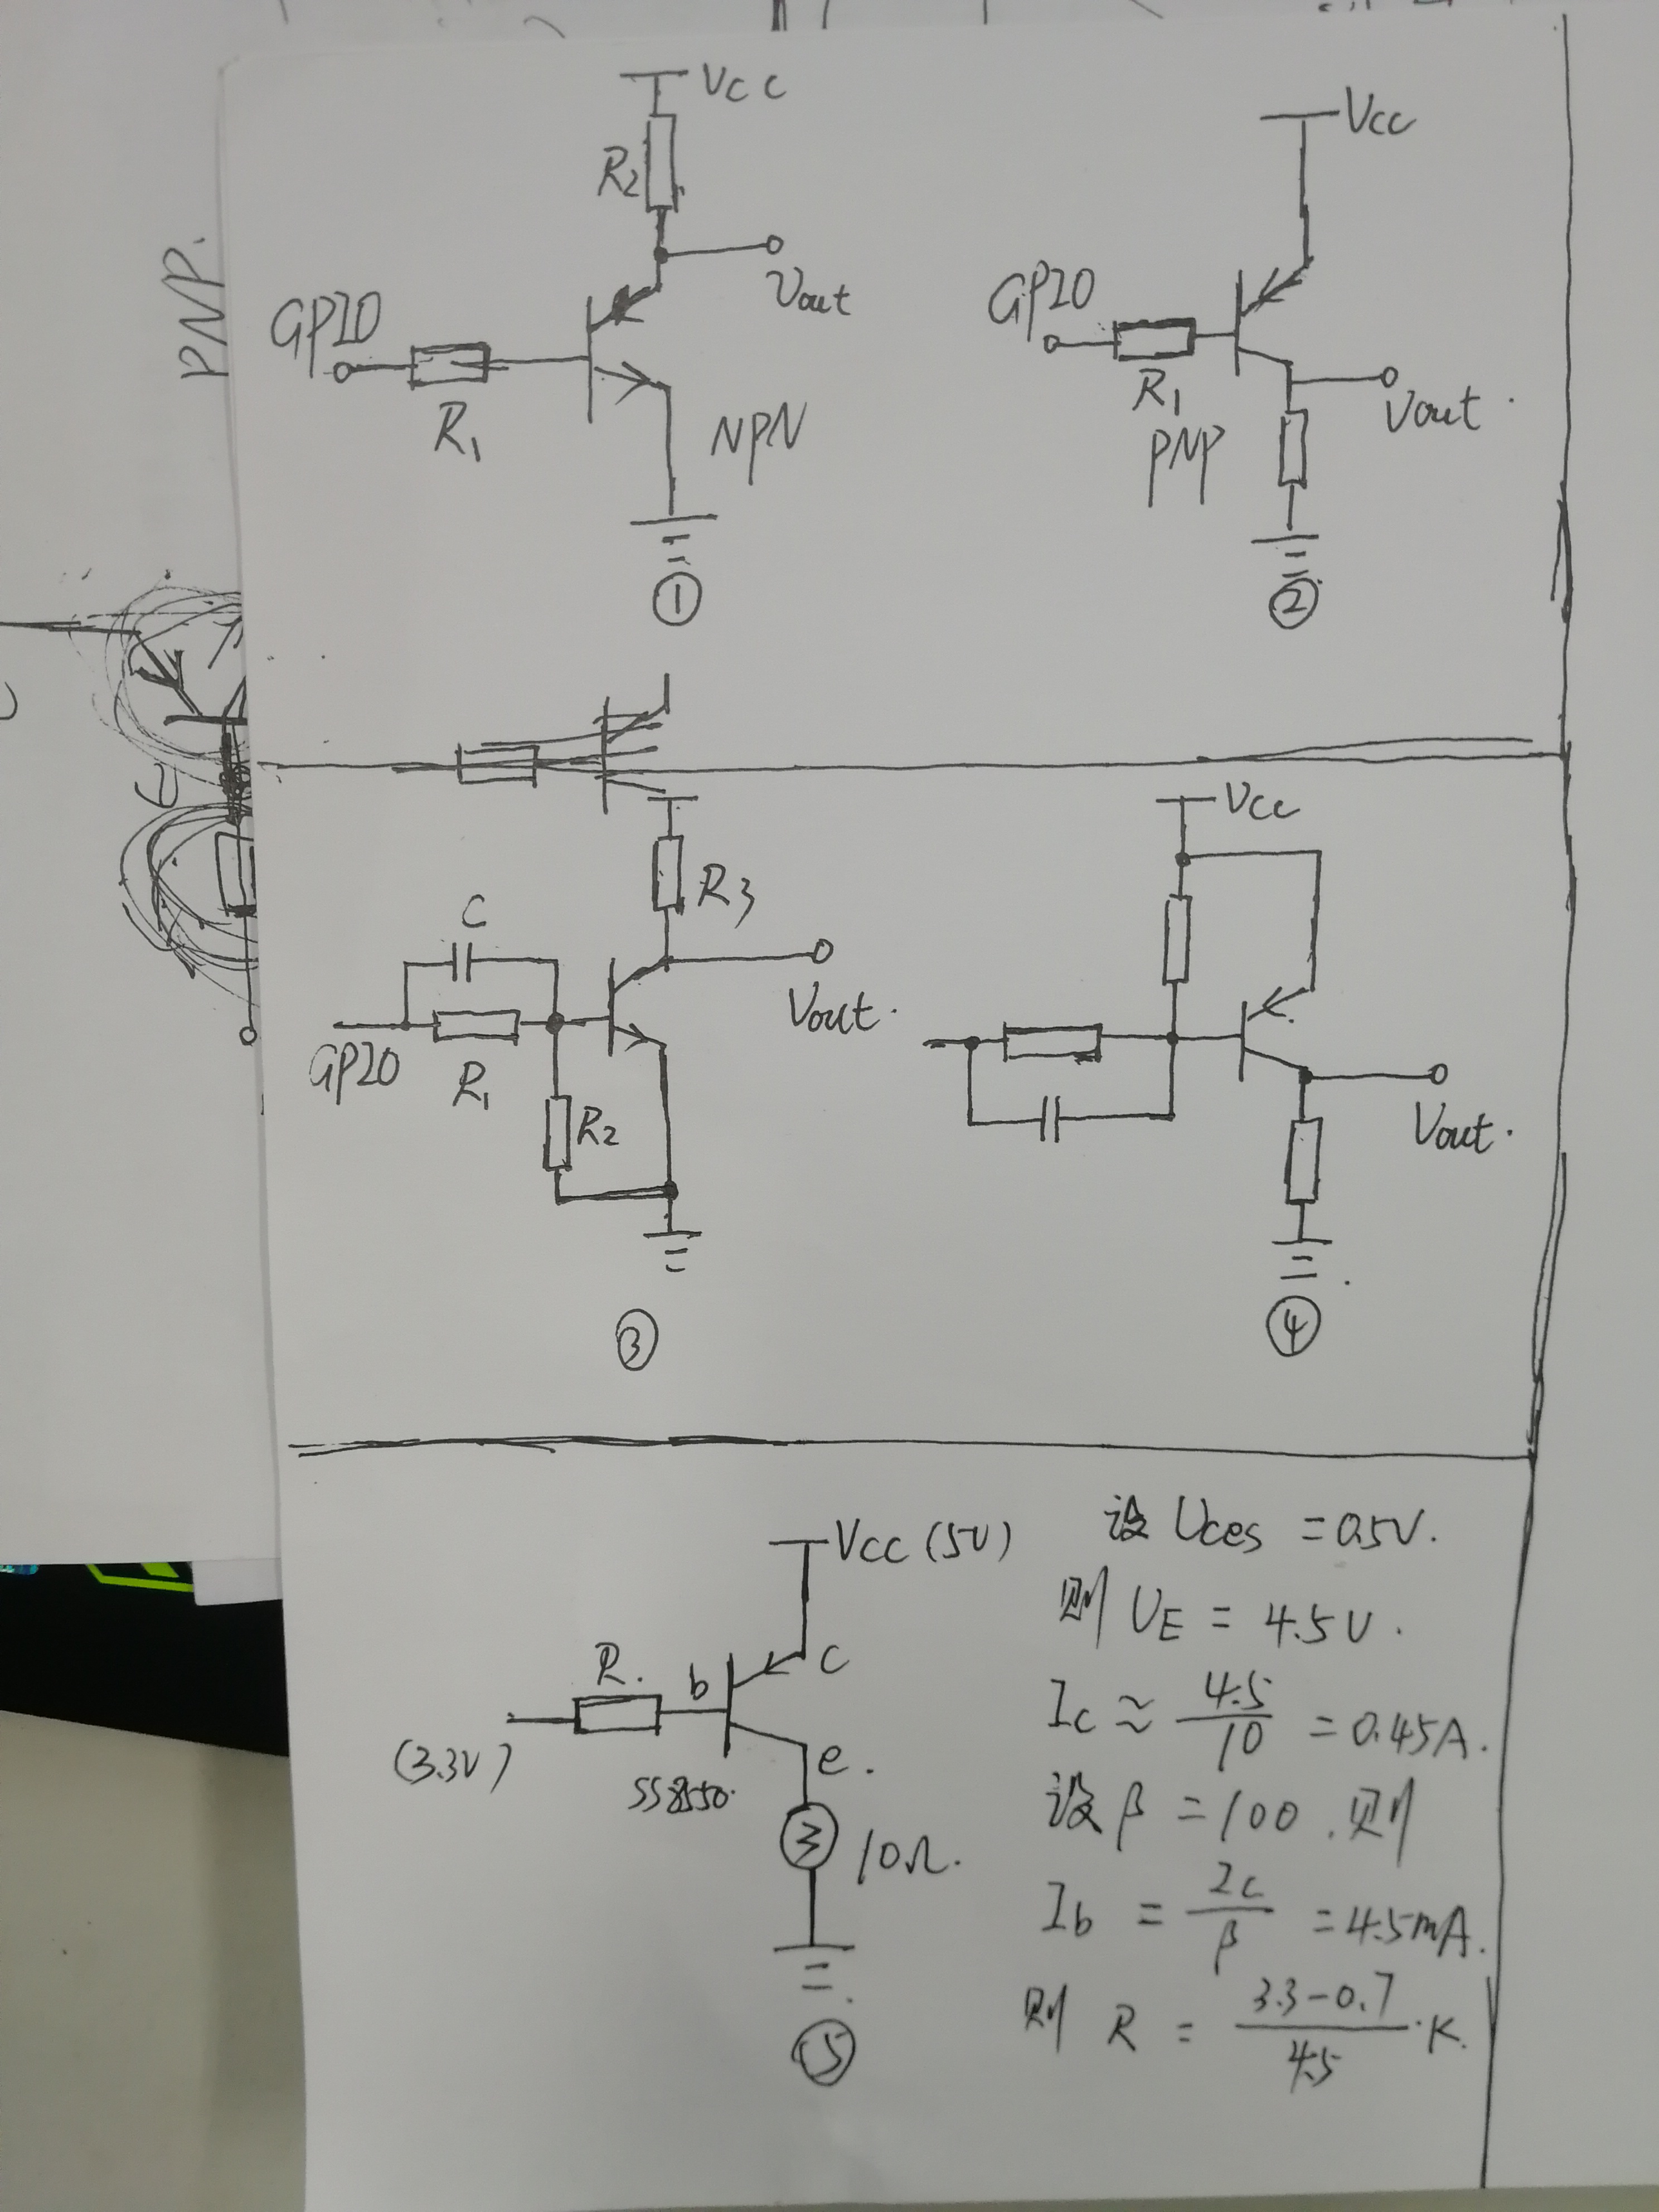 PNP.
Vcc
R2
Vout
GPIO
R1
NPN
①
Vcc
GPIO
R1
PNP
Vout.
②
R3
C
Vout.
GPIO
R1
R2
③
Vcc
Vout.
④
Vcc (5V)
R.
b
c
(3.3V)
SS8550.
e.
10Ω.
⑤
设 Uces = 0.5V.
则 UE = 4.5V.
Ic ≈ 4.5/10 = 0.45A.
设 β = 100. 则
Ib = Ic/β = 4.5mA.
则 R = 3.3-0.7/4.5 ·K.